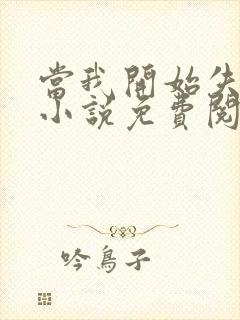 當我開始失
小說免費閱
吟鳥子